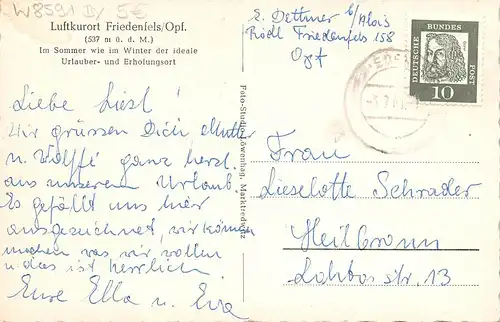 W8591 D/ 5€
Luftkurort Friedenfels/Opf.
(537 m ü. d. M.)
Im Sommer wie im Winter der ideale
Urlauber- und Erholungsort
Liebe Liesl!
Wir grüssen Dich, Mutter
u. Wolffi ganz herzl.
aus unserem Urlaub.
Es gefällt uns hier
ausgezeichnet, wir können
machen was wir wollen
u das ist herrlich.
Eure Ella u. Eva
Foto-Studio Löwenhag, Marktredwitz
E. Dettmer b/Alois
Rödl Friedenfels 158
Opf
DEUTSCHE
BUNDES
POST
10
Frau
Lieselotte Schrader
Heilbronn
str. 13